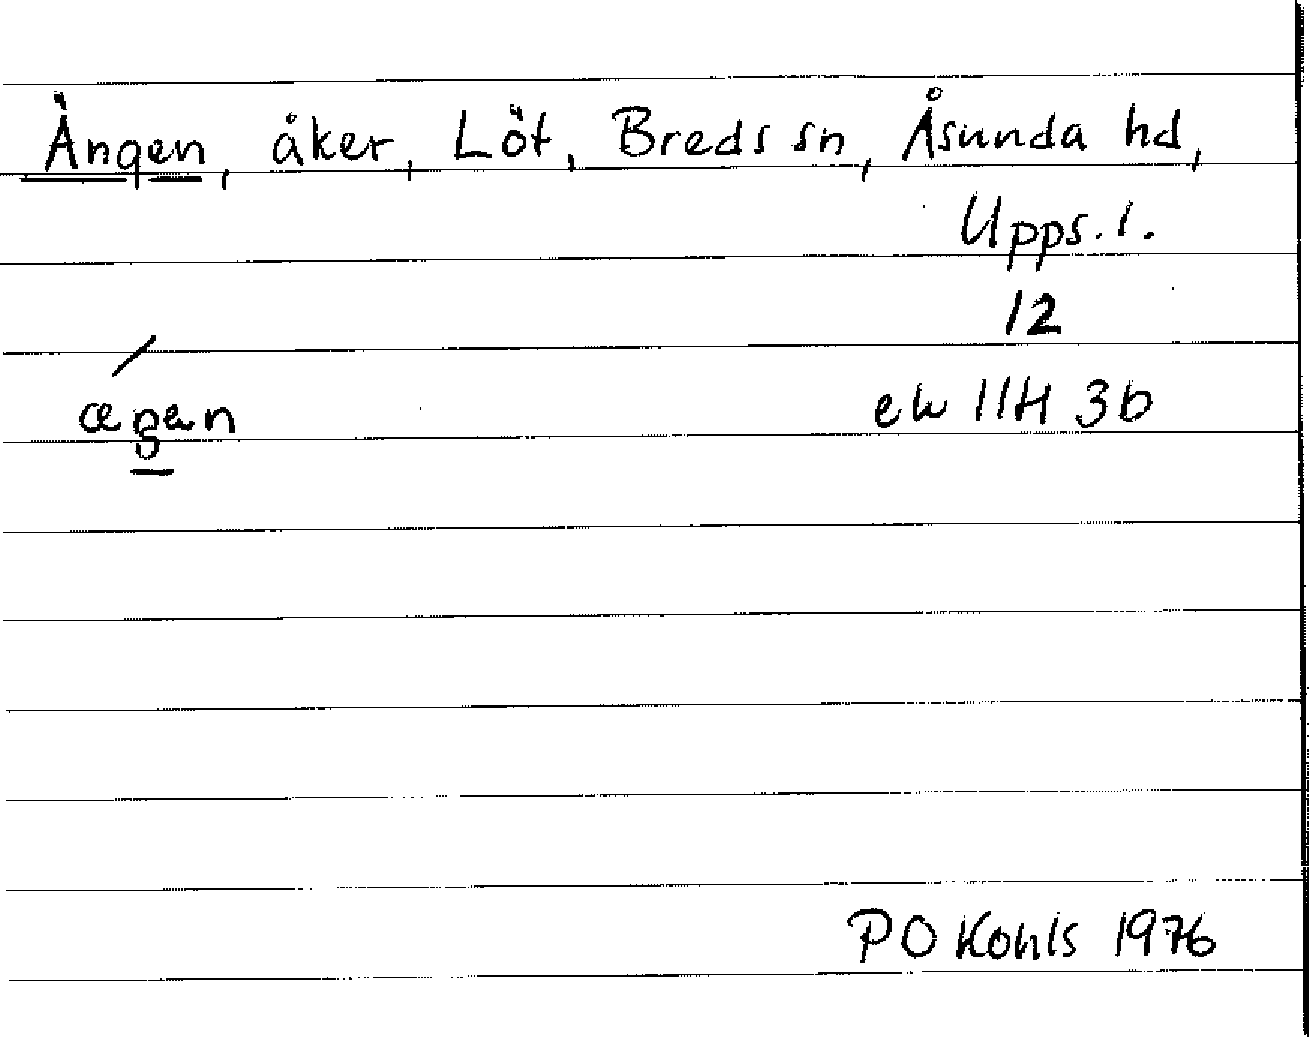 Ängen, åker, Löt, Breds sn, Åsunda hd,
Upps. l.
12
ek 11H 3b
PO Kohls 1976